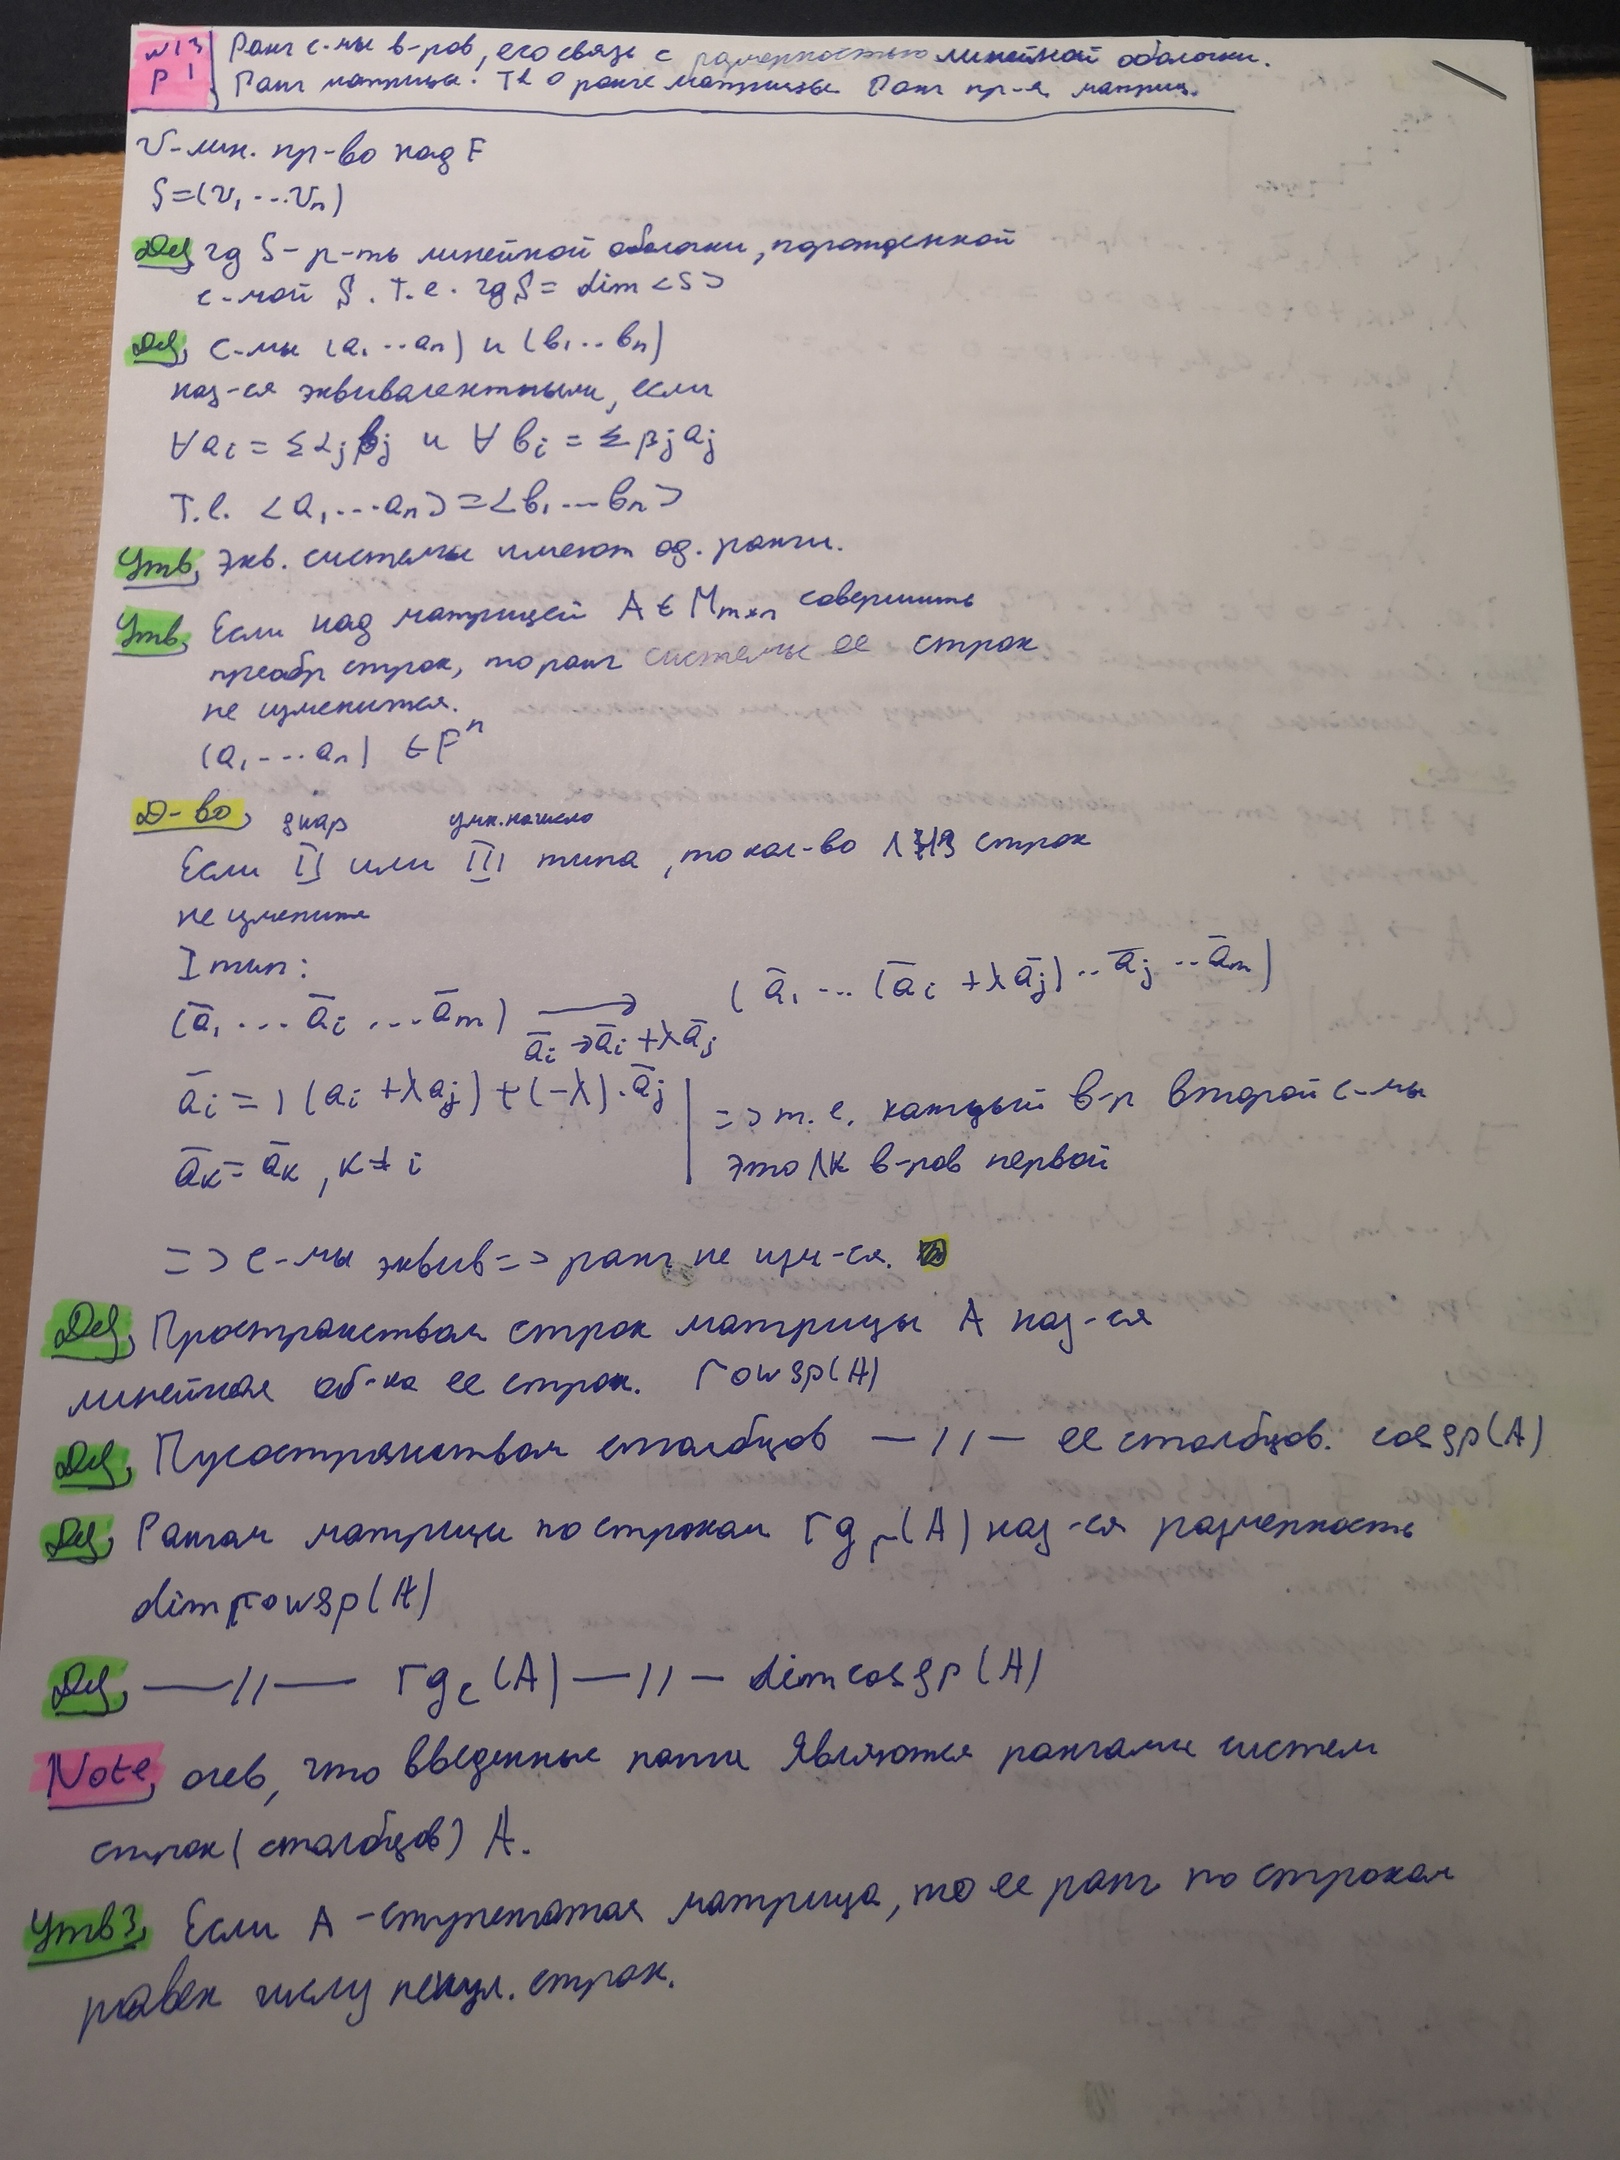 N13 Ранг с-мы в-ров, его связь с размерностью линейной оболочки.
P1 Ранг матрицы. Th о ранге матрицы. Ранг пр-я матриц.
V-лин. пр-во над F
S=(v₁ ... vₙ)
Def, rg S - р-ть линейной оболочки, порожденной
с-мой S. Т.е. rg S = dim <S>
Def, с-мы (a₁ ... aₙ) и (b₁ .. bₙ)
наз-ся эквивалентными, если
∀ aᵢ = Σ αⱼ bⱼ и ∀ bᵢ = Σ βⱼ aⱼ
Т.е. <a₁ ... aₙ> = <b₁ ... bₙ>
Утв, Экв. системы имеют од. ранги.
Утв, Если над матрицей A ∈ Mₘₓₙ совершить
преобр строк, то ранг системы ее строк
не изменится.
(a₁ ... aₙ) ∈ Fⁿ
Д-во, умн. на число
Если II или III типа, то кол-во ЛНЗ строк
не измените
I тип:
(a̅₁ ... a̅ᵢ ... a̅ₘ) ⟶ (a̅₁ ... (a̅ᵢ + λa̅ⱼ) .. a̅ⱼ .. a̅ₘ)
a̅ᵢ → a̅ᵢ + λa̅ⱼ
a̅ᵢ = 1 (aᵢ + λaⱼ) + (-λ) · a̅ⱼ | => т. е. каждый в-р второй с-мы
a̅ₖ = a̅ₖ , k ≠ i | это ЛК в-ров первой
=> с-мы эквив => ранг не изм-ся.
Def, Пространствам строк матрицы A наз-ся
линейная об-ка ее строк. rowsp(A)
Def, Пусостранствам столбцов —//— ее столбцов. colsp(A)
Def, Рангам матрицы по строкам rgᵣ(A) наз-ся размерность
dim rowsp(A)
Def, —//— rg_c(A) —//— dim colsp(A)
Note, очев, что введенные ранги являются рангами систем
строк (столбцов) A.
Утв3, Если A - ступенчатая матрица, то ее ранг по строкам
равен числу ненул. строк.